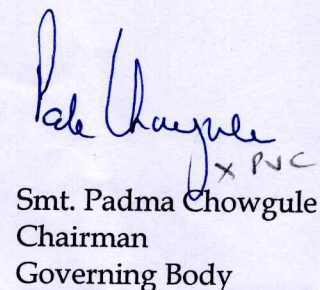 x PVC
Smt. Padma Chowgule
Chairman
Governing Body